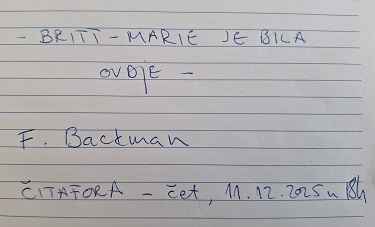 - BRITT-MARIE JE BILA
OVDJE -
F. Backman
ČITAFORA - čet, 11.12.2025 u 18h